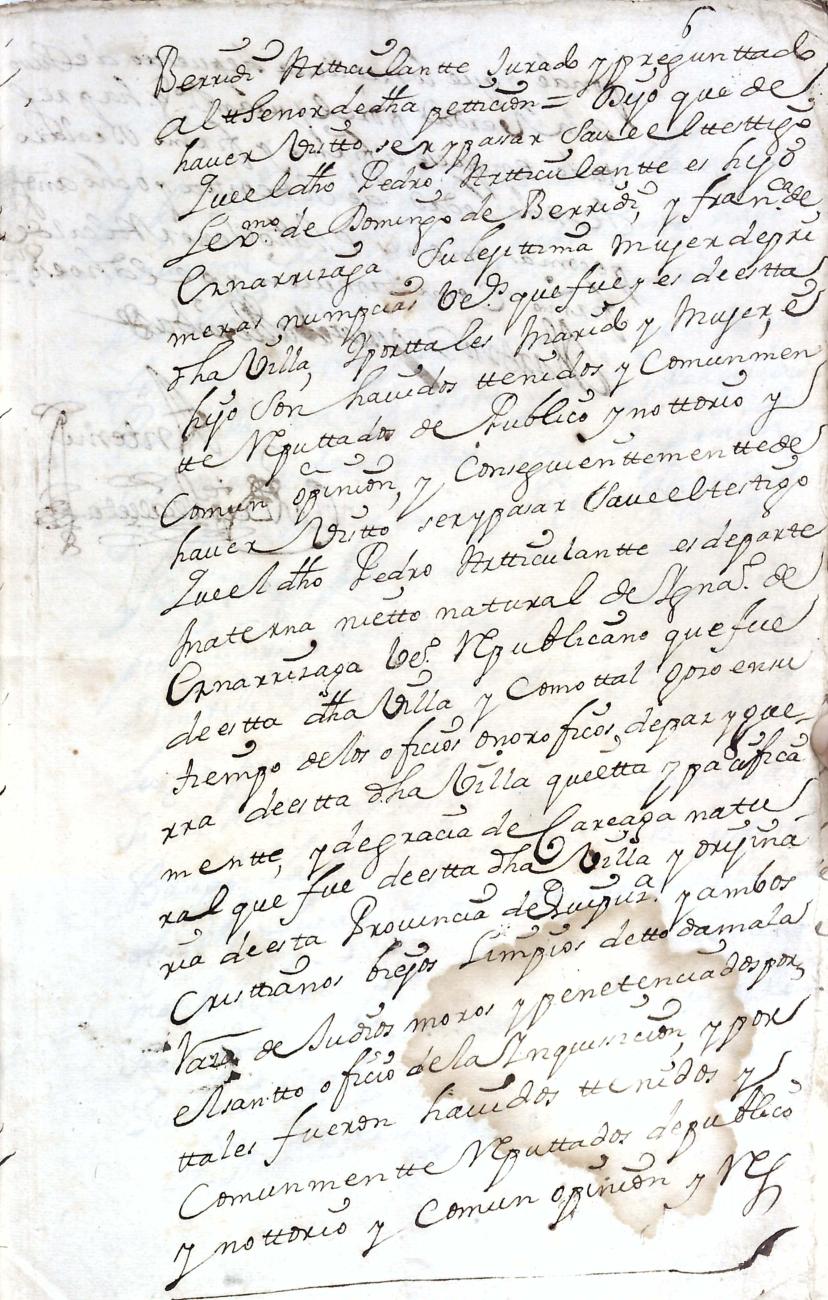 6
Berridi Artticulantte Jurado y preguntado
al ttenor de dha pettizion = Dijo que de
haver Vistto, ser y pasar Save el ttesttigo
Que el dho Pedro Artticulantte es hijo
Lexmo. de Domingo de Berridi, y franca. de
Ernarrizaga Su lejittima Mujer de pri
meras numpcias Veos. que fue y es de estta
dha Villa, y porttales Marido y Mujer, e
hijo Son havidos ttenidos y Comunmen
tte Reputtados de Publico y nottorio y
Comun opinion, y Conseguienttementte de
haver Vistto ser y pasar Save el testigo
Que el dho Pedro Artticulantte es de parte
Materna nietto natural de Ygnao. de
Ernarrizaga Veo. Republicano que fue
de estta dha Villa y Como ttal gozo en su
tiempo de los oficios onoroficos, de paz y gue-
rra de estta dha Villa quietta y pacifica
mentte, y de gracia de Careaga natu
ral que fue de estta dha Villa y orijina
ria de esta Provincia de Guipuza. y ambos
Cristtianos biejos Limpios de tto da mala
Raza de Judios moros y penetenciados por
el santto oficio de la Ynquisicion, y por
ttales fueron havidos ttenidos y
Comunmentte Reputtados de publico
y nottorio y Comun opinion y